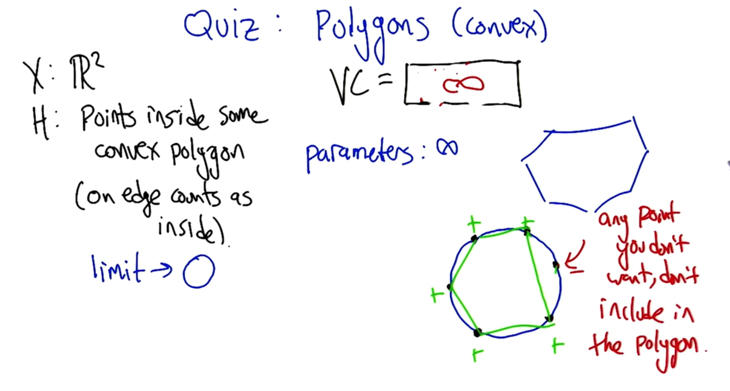 Quiz: Polygons (convex)
X: ℝ²
H: Points inside some
convex polygon
(on edge counts as
inside).
limit →
VC = ∞
parameters: ∞
+ +
+
+ +
-
any point
you don't
want, don't
include in
the polygon.